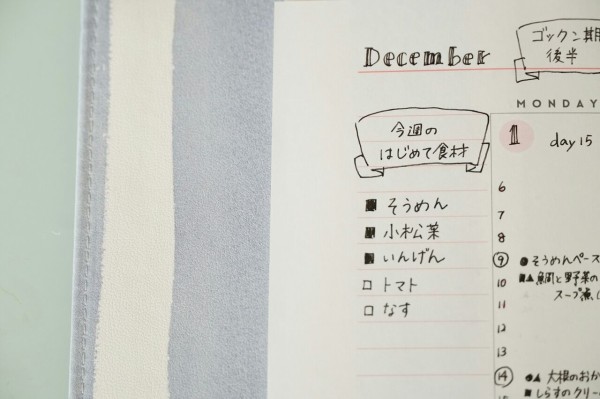 December
ゴックン期
後半
MONDAY
今週の
はじめて食材
1 day 15
■ そうめん
■ 小松菜
■ いんげん
□ トマト
□ なす
6
7
8
9 ●そうめんペース
10 ■▲鯛と野菜の
スープ煮
11
12
13
14 ●▲ 大根のおか
■ しらすのクリー